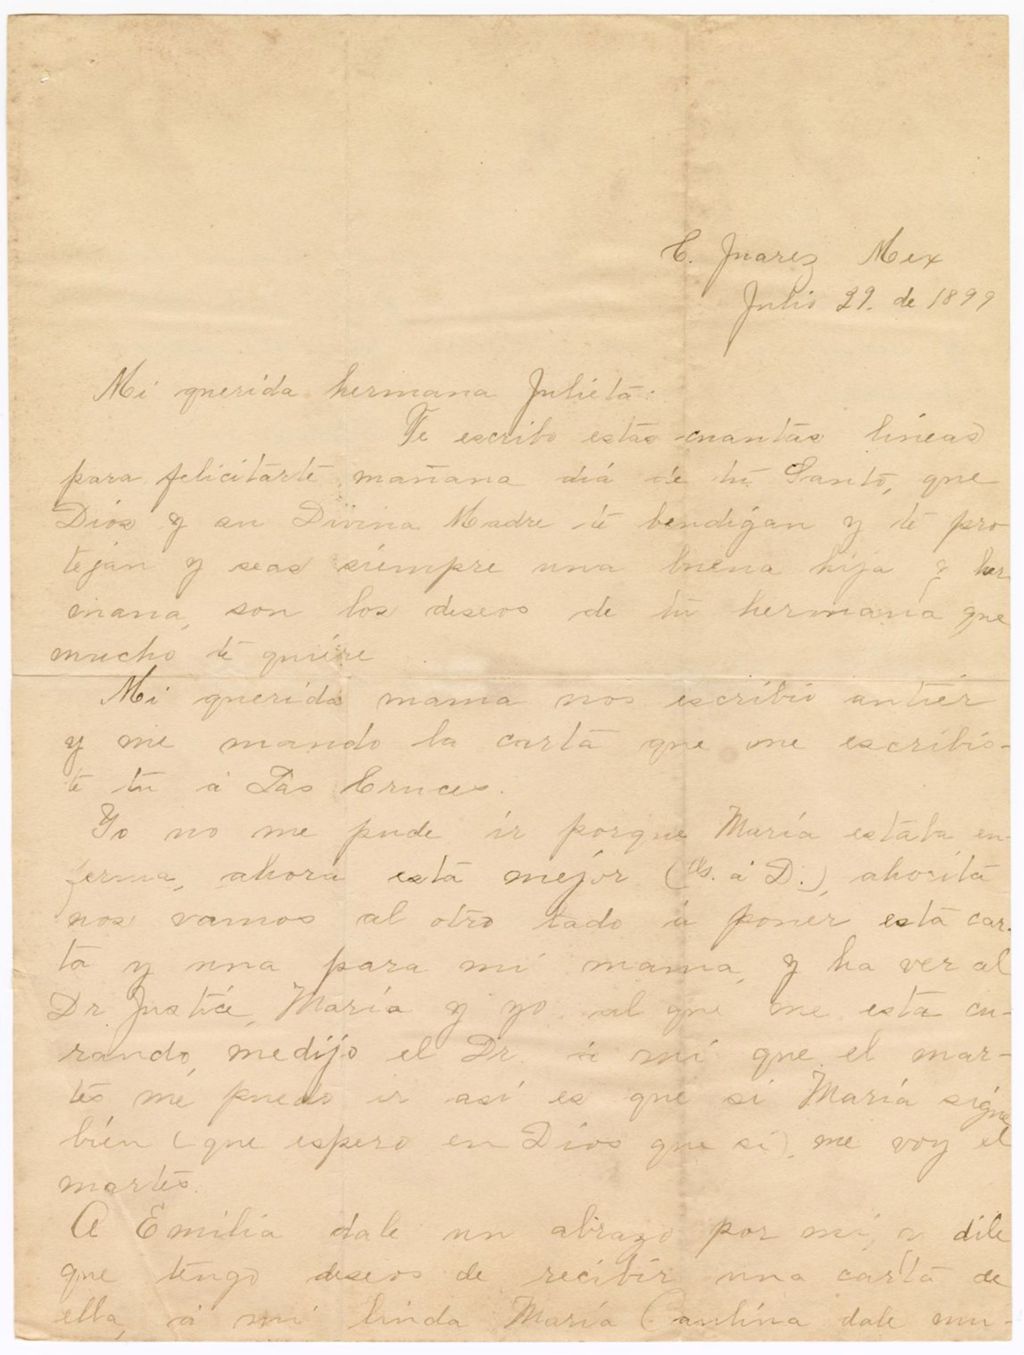 C. Juarez Mex
Julio 29. de 1899
Mi querida hermana Julieta:
Te escribo estas cuantas lineas
para felicitarte mañana dia de tu Santo, que
Dios y su Divina Madre te bendigan y te pro-
tejan y seas siempre una buena hija y her
mana, son los deseos de tu hermana que
mucho te quiére
Mi querida mama nos escribio antier
y me mando la carta que me escribis-
te tu á Las Cruces.
Yo no me pude ir porque María estaba en-
ferma, ahora está mejor (Gs. á D.), ahorita
nos vamos al otro lado á poner esta car-
ta y una para mi mama, y ha ver al
Dr. Justice, María y yo, al que me está cu-
rando, medijo el Dr. á mí que el mar-
tes me puedo ir así es que si María sigue
bién (que espero en Dios que si), me voy el
martes.
A Emilia dale un abrazo por mí, y dile
que tengo deseos de recibir una carta de
ella, á mi linda María Paulina dale mu-